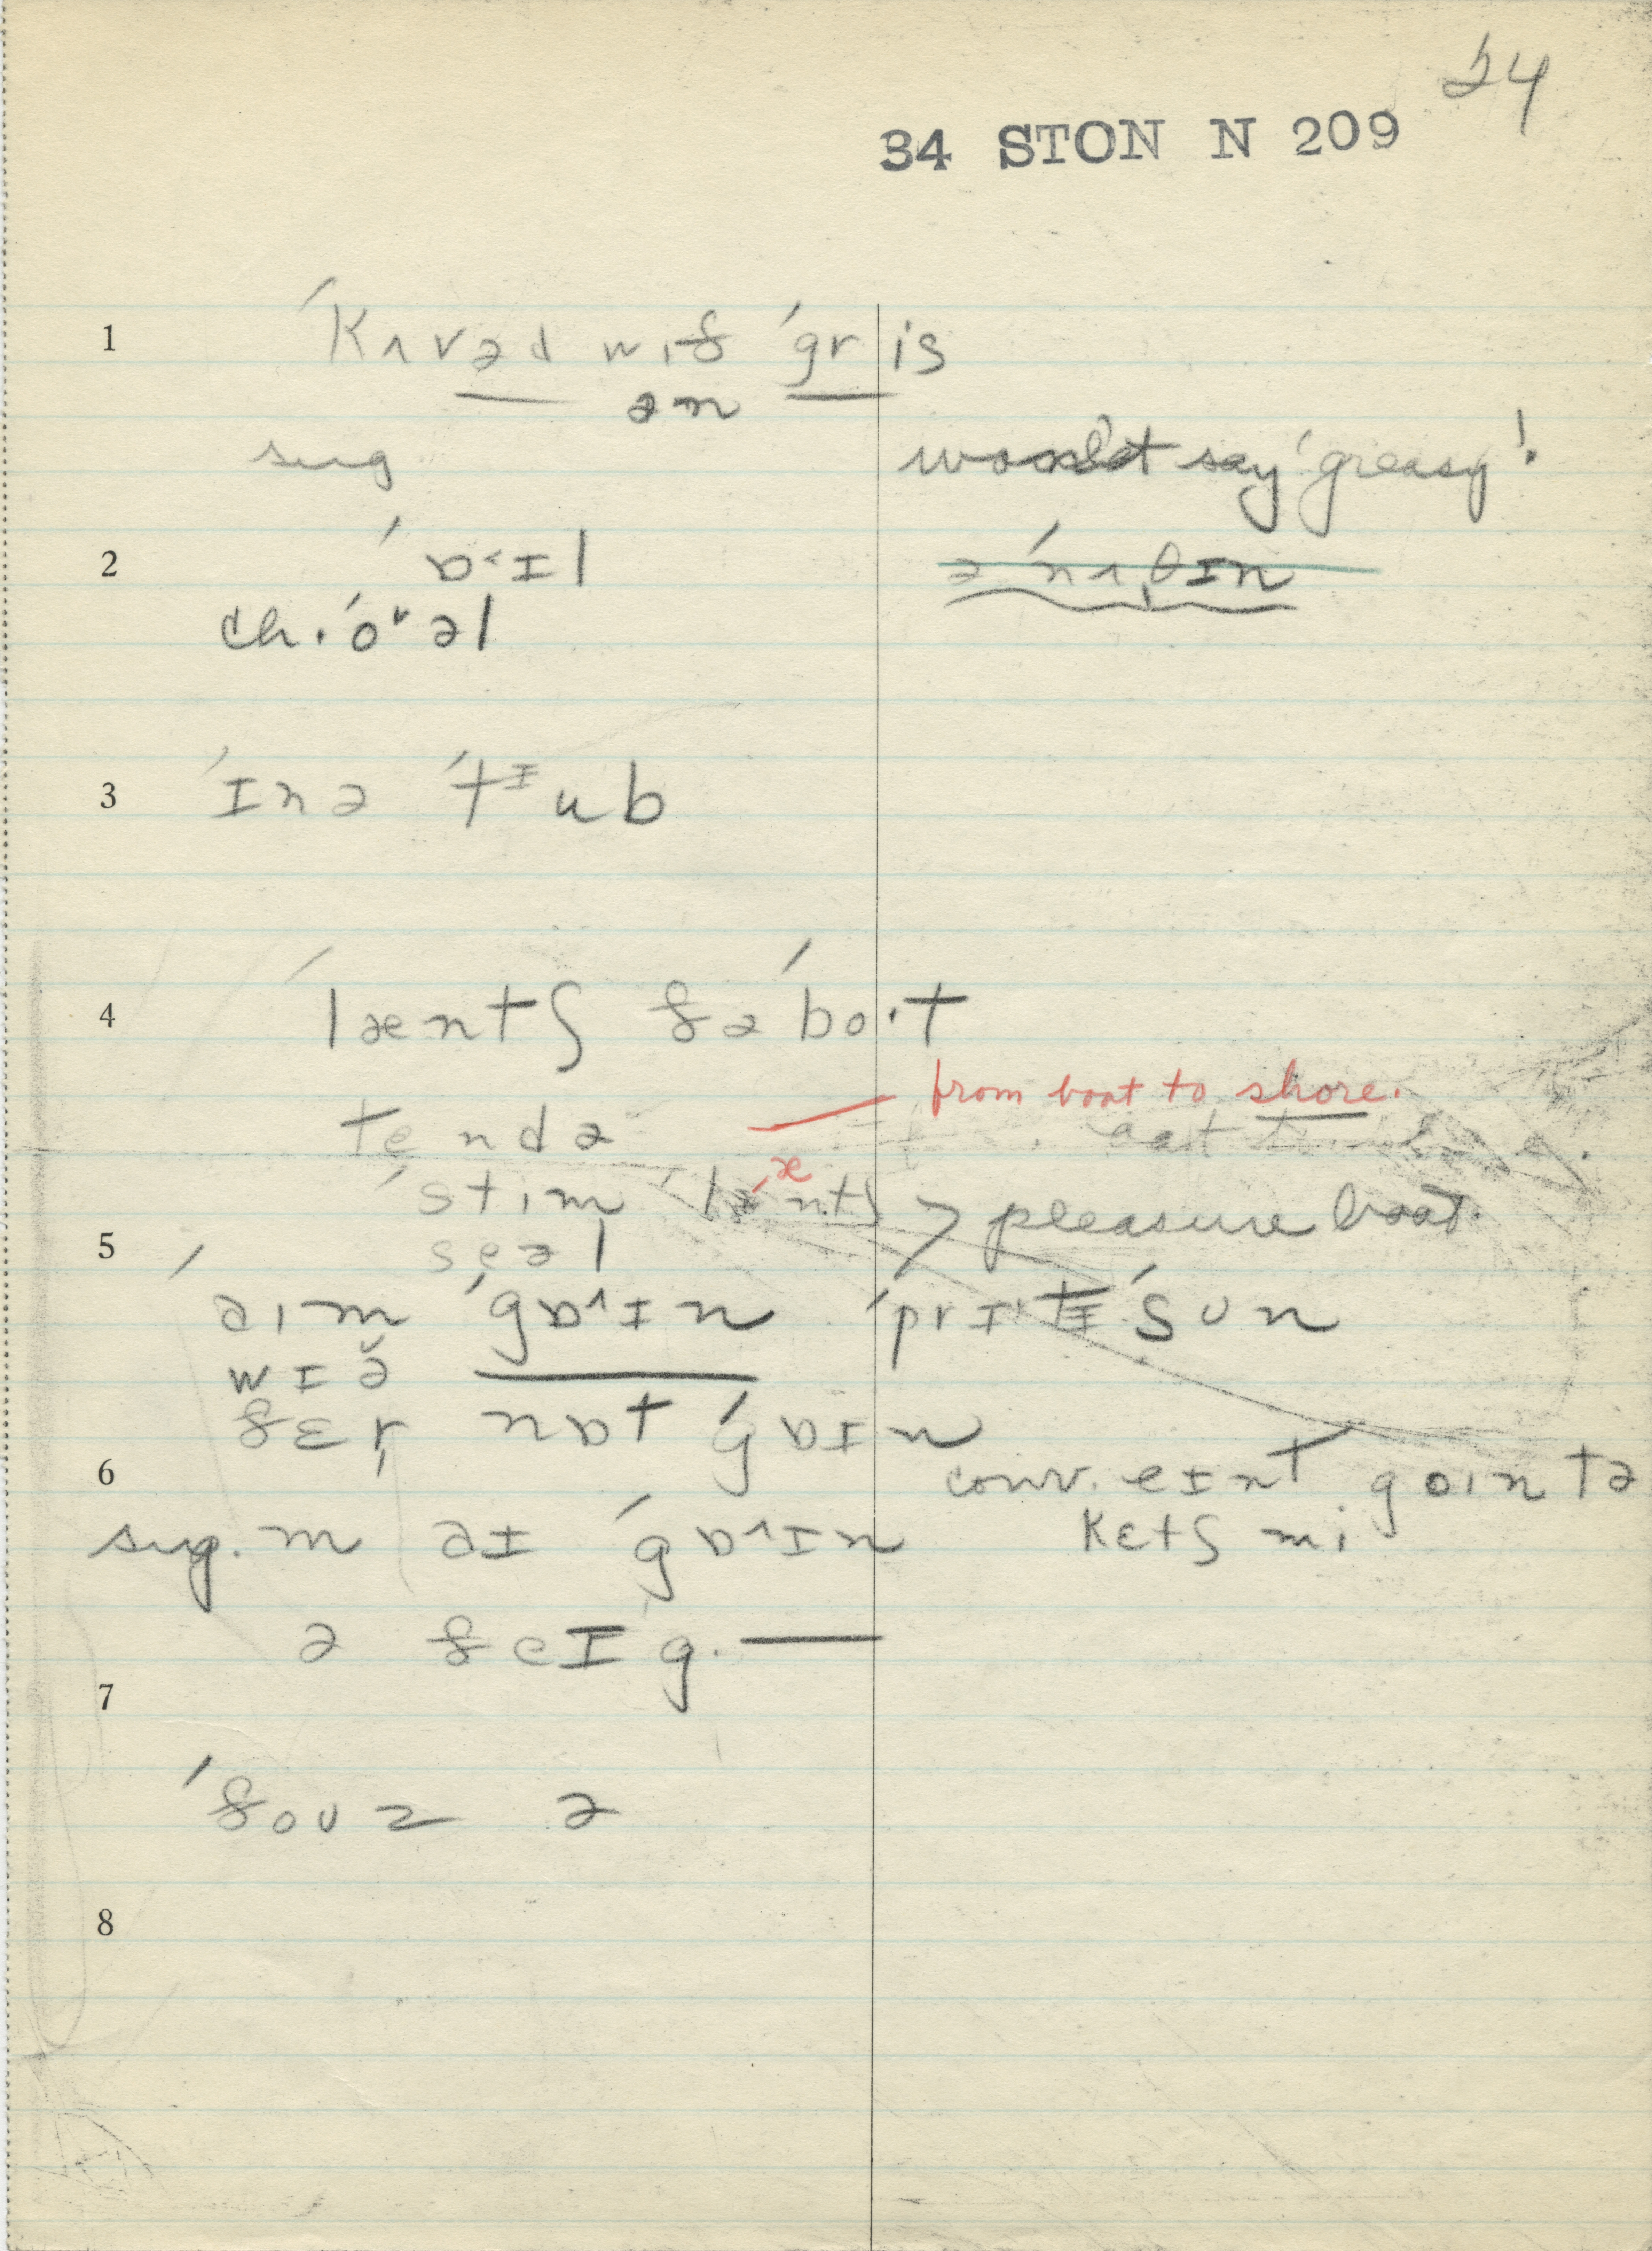 24
34 STON N 209
1 ˈkʌvəd wɪð ˈgris
ən
sug wouldn't say 'greasy'!
2 ˈɒ˂ɪl ə ˈnʌθɪn
ch. ˈoᵛəl
3 ˈɪn ə ˈtᴵub
4 ˈlæntʃ ðə ˈbo·t
tendə from boat to shore.
ˈstim læntʃ > pleasure boat.
5 seəl
aɪm ˈgɒ˄ɪn ˈprɪtɪ ˈsun
wɪə̆
ðɛr nɒt ˈgɒɪn
6 conv. eɪnt goɪn tə
sug. m aɪ ˈgɒ˄ɪn kɛtʃ mi
ə ðeɪ g. —
7
ˈðouz ə
8